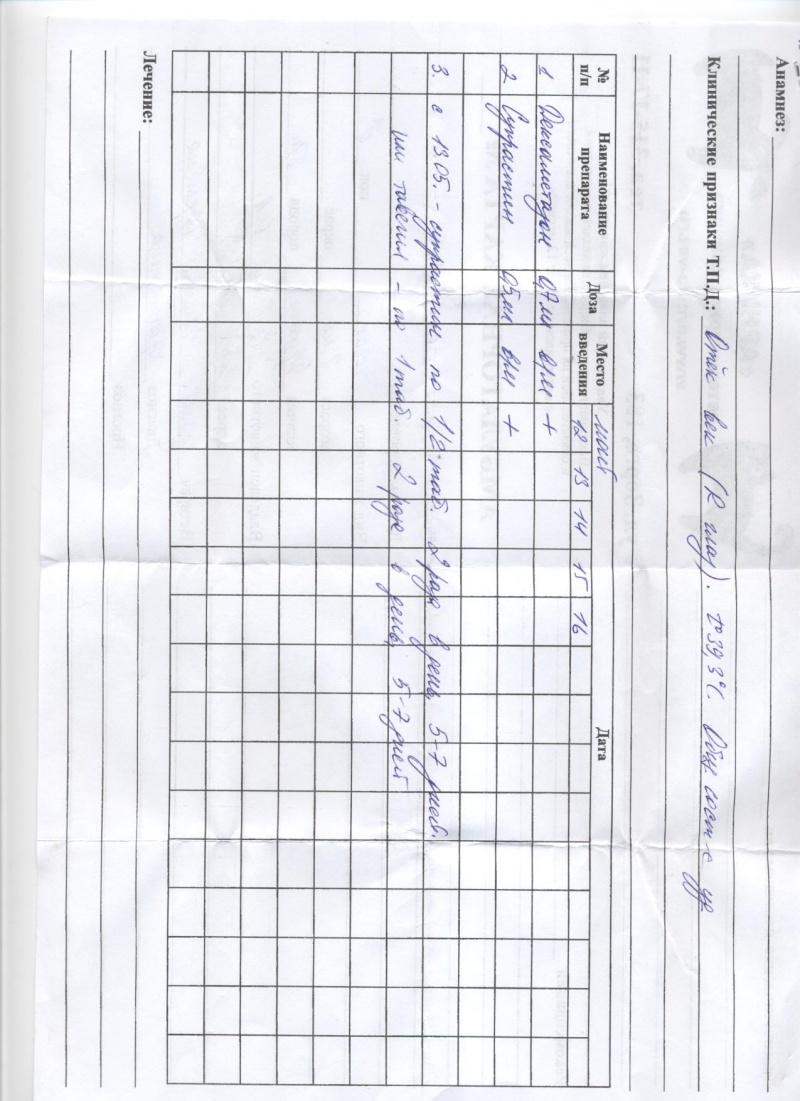 Анамнез:
Клинические признаки Т.П.Д.: Отёк век (R глаз). t° 39,3°C. Общ. сост-е уд.
№ п/п Наименование препарата Доза Место введения Дата
май
12 13 14 15 16
1 Дексаметазон 0,7мл в/м +
2 Супрастин 0,5мл в/м +
3. с 13.05. - супрастин по 1/2 таб. 2 раза в день, 5-7 дней,
или тавегил - по 1 таб. 2 раза в день, 5-7 дней
Лечение: